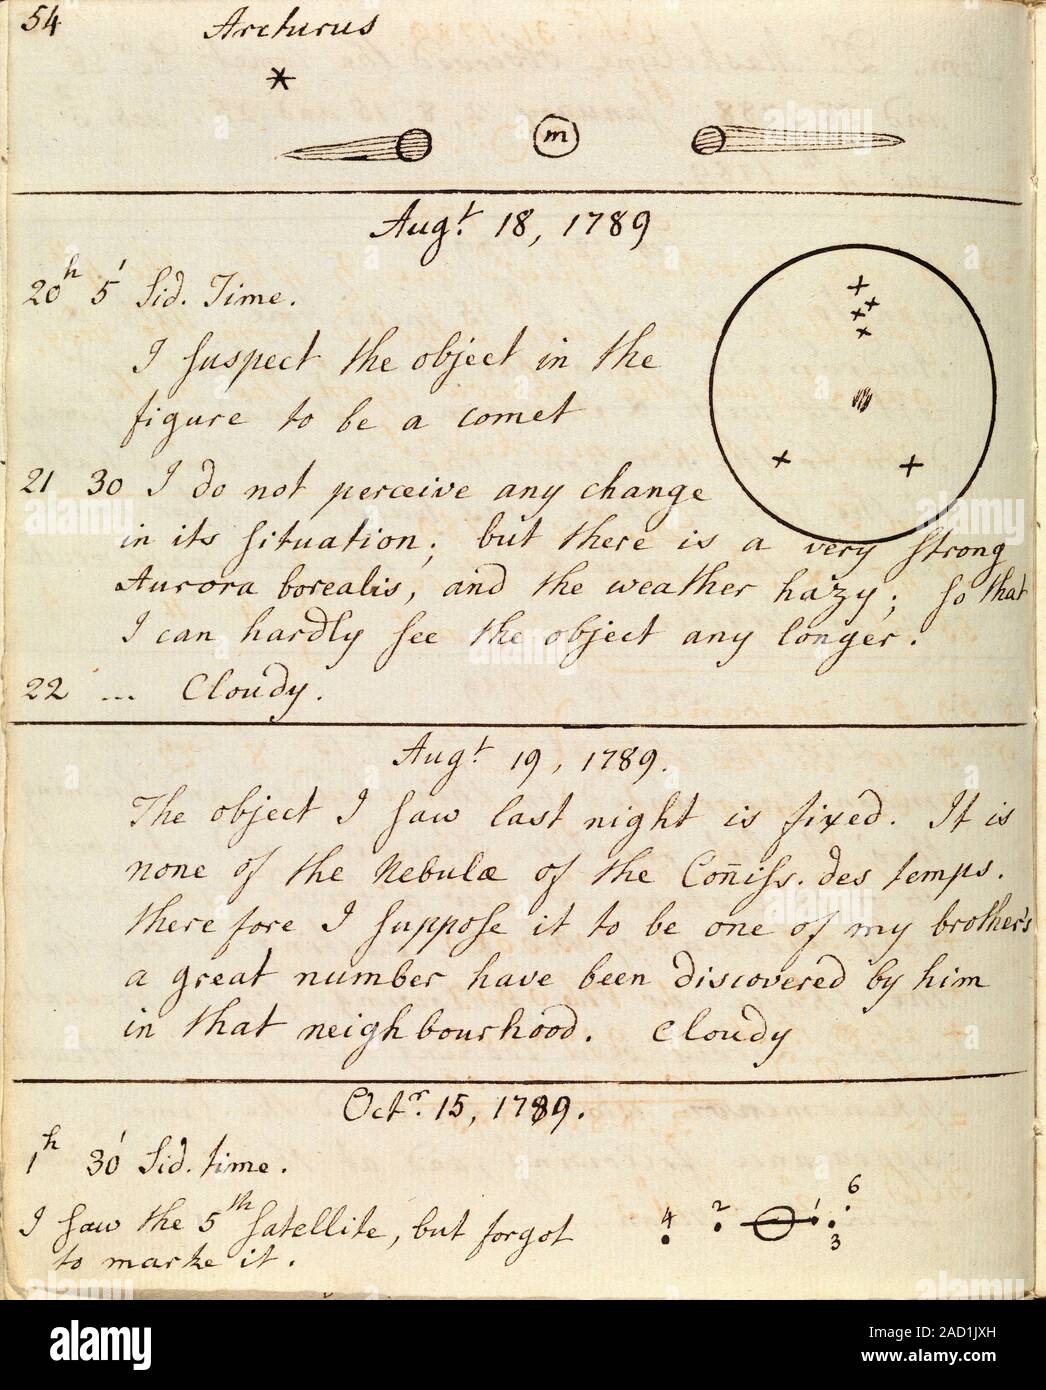 54
Arcturus
m
Augt. 18, 1789
20h 5' Sid. Time.
I suspect the object in the
figure to be a comet
21 30 I do not perceive any change
in its situation; but there is a very strong
Aurora borealis, and the weather hazy; so that
I can hardly see the object any longer.
22 ... Cloudy.
Augt. 19, 1789.
The object I saw last night is fixed. It is
none of the Nebulæ of the Coñiss. des temps.
there fore I suppose it to be one of my brother's
a great number have been discovered by him
in that neighbourhood. Cloudy
Octr. 15, 1789.
1h 30' Sid. time.
I saw the 5th satellite, but forgot
to marke it.
4 2 1 3 6
alamy
alamy
2AD1JXH
www.alamy.com